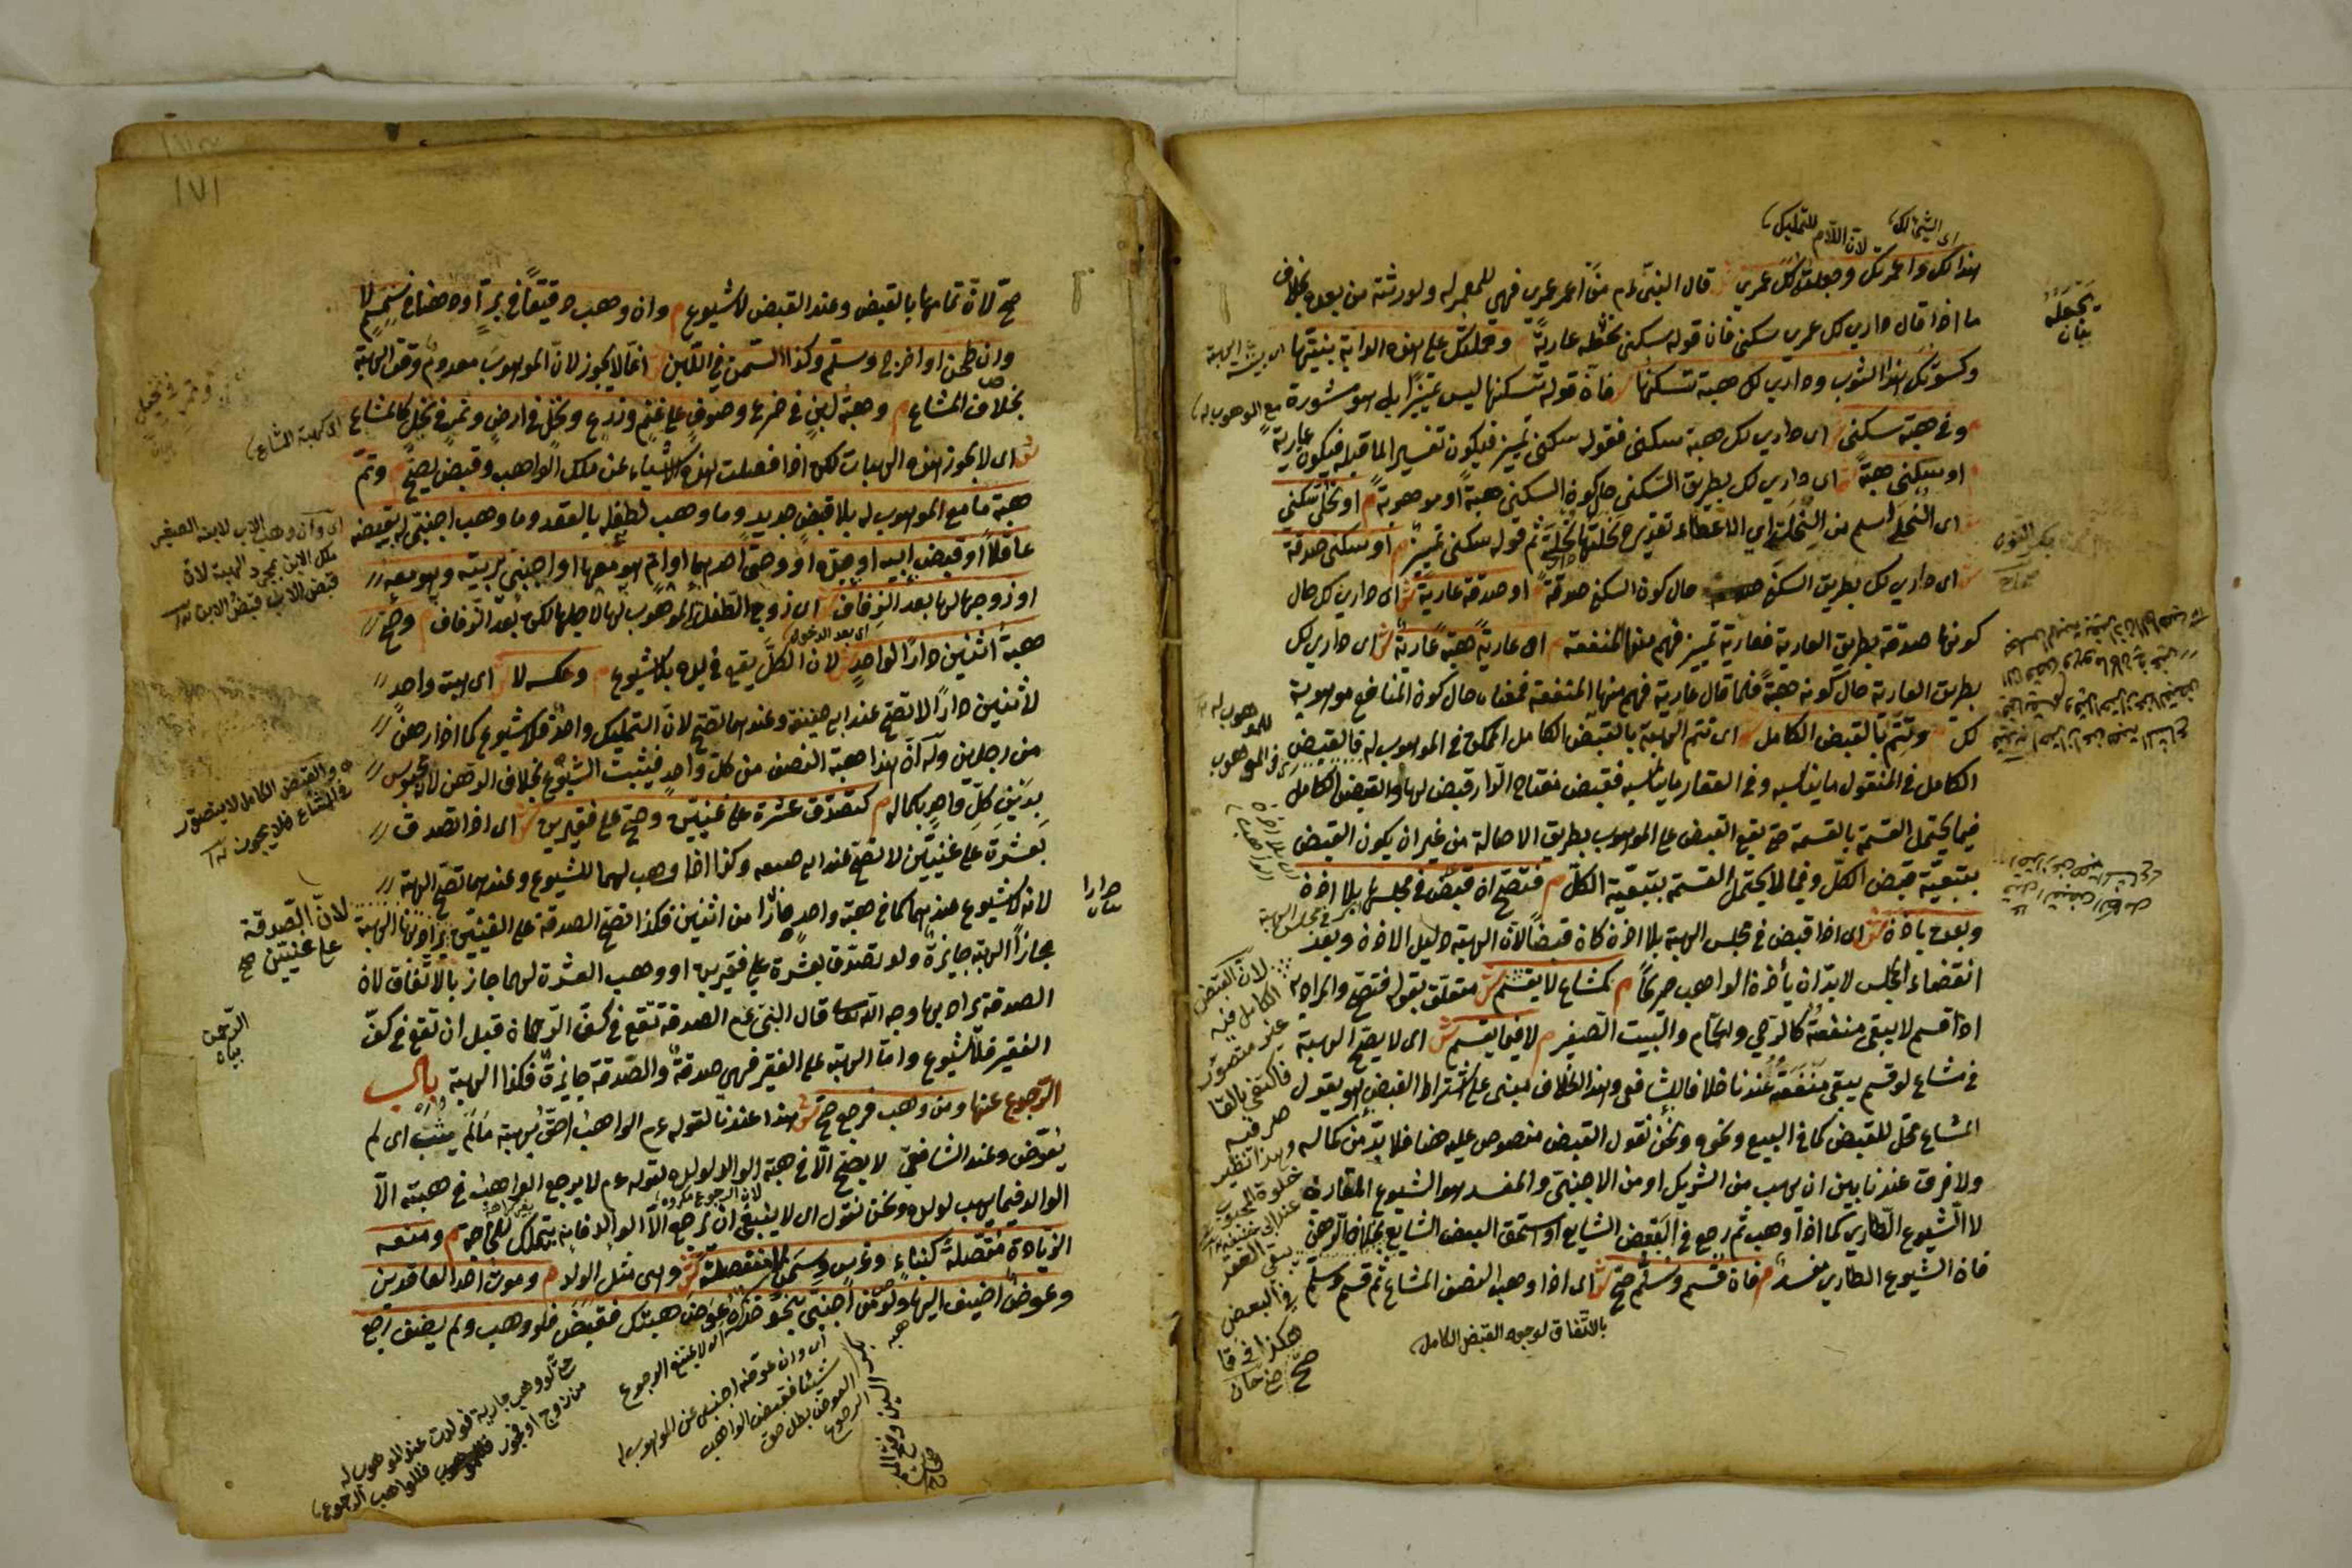 اى الشئ لك
لان اللام للتمليك
هذا لك واعمرتك وجعلته لك عمرى قال النبى ءم من اعمر عمرى فهى للمعمر له ولورثته من بعده بخلاف
ما اذا قال دارى لك عمرى سكنى فان قوله سكنى تجعله عارية وحملتك على هذه الدابة بنيتها
وكسوتك هذا الثوب ودارى لك هبة تسكنها فان قوله تسكنها ليس تمييزا بل هو مشورة
وفى هبة سكنى اى دارى لك هبة سكنى فقوله سكنى تمييز فيكون تفسيرا لما قبله فيكون عارية
او سكنى هبة اى دارى لك بطريق السكنى حال كون السكنى هبة او موهوبة م او نحلى سكنى
اى النحلى اسم من النحلة اى الاعطاء تقديره نحلتها نحلة ثم قوله سكنى تمييز م او سكنى صدقة
ش اى دارى لك بطريق السكنى حال كون السكنى صدقة او صدقة عارية ش اى دارى لك حال
كونها صدقة بطريق العارية فعارية تمييز فهم منها المنفعة او عارية هبة عارية ش اى دارى لك
بطريق العارية حال كونه هبة فلما قال عارية فهم منها المنفعة فمعناه حال كون المنافع موهوبة
لك وتتم بالقبض الكامل اى تتم الهبة بالقبض الكامل الممكن فى الموهوب له فالقبض
الكامل فى المنقول ما يناسبه وفى العقار ما يناسبه فقبض مفتاح الدار قبض لها والقبض الكامل
فيما يحتمل القسمة بالقسمة حتى يقع القبض على الموهوب بطريق الاصالة من غير ان يكون القبض
بتبعية قبض الكل وفيما لا يحتمل القسمة بتبعية الكل م فتصح ان قبض فى مجلسها بلا اذن
وبعده باذن ش اى اذا قبض فى مجلس الهبة بلا اذن كان قبضا لان الهبة دليل الاذن وبعد
انقضاء المجلس لا بد ان يأذن الواهب صريحا م كمشاع لا يقسم ش متعلق بقوله فتصح والمراد به
اذا قسم لا يبقى منفعة كالرحى والحمام والبيت الصغير م لا فيما يقسم ش اى لا يصح الهبة
فى مشاع لو قسم يبقى منفعة عندنا خلافا للشافعى وهذا الخلاف مبنى على اشتراط القبض هو يقول
المشاع محل للقبض كما فى البيع ونحوه ونحن نقول القبض منصوص عليه هنا فلا بد من كماله
ولا فرق عندنا بين ان يهب من الشريك او من الاجنبى والمفسد هو الشيوع المقارن
لا الشيوع الطارى كما اذا وهب ثم رجع فى البعض الشايع او استحق البعض الشايع بخلاف الرهن
فان الشيوع الطارى مفسد م فان قسم وسلم صح ش اى اذا وهب النصف المشاع ثم قسم وسلم
بالاتفاق لوجود القبض الكامل
تجعله
بيان
مع الموهوب له
للموهوب له
لان القبض
الكامل فيه
غير متصور
فاكتفى بالقا
صر فيه
وهذا نظير
يبقى العقد
فى البعض
هكذا فى قا
ضى خان
صح
١٧١
صح لان تمامها بالقبض وعند القبض لا شيوع م وان وهب دقيقا فى بر او دهنا فى سمسم لا
وان طحن او اخرج وسلم وكذا السمن فى اللبن انما لا يجوز لان الموهوب معدوم وقت الهبة
بخلاف المشاع م وهبة لبن فى ضرع وصوف على غنم وزرع ونخل فى ارض وثمر فى نخل كالمشاع
ش اى لا يجوز هذه الهبات لكن اذا فصلت هذه الاشياء عن ملك الواهب وقبض يصح م وتم
هبة ما مع الموهوب له بلا قبض جديد وما وهب لطفله بالعقد وما وهب اجنبى له بقبضه
عاقلا او قبض ابيه او جده او وصى احدهما او ام هو معها او اجنبى يربيه وهو معه
او زوجها لها بعد الزفاف اى زوج الطفل الموهوب لها لاجلها لكن بعد الزفاف م وصح
اى بعد الدخول
هبة اثنين دارا لواحد ش لان الكل يقع فى يده بلا شيوع م وعكسه لا ش اى هبة واحد
لاثنين دارا لا تصح عند ابى حنيفة وعندهما تصح لان التمليك واحد فلا شيوع كما اذا رهن
من رجلين وله ان هذا هبة النصف من كل واحد فيثبت الشيوع بخلاف الرهن لانه محبوس
بدين كل واحد بكماله م كتصدق عشرة على غنيين وصح على فقيرين ش اى اذا تصدق
بعشرة على غنيين لا تصح عند ابى حنيفه وكذا اذا وهب لهما للشيوع وعندهما تصح الهبة
لانه لا شيوع عندهما كما فى هبة واحد دارا من اثنين فكذا تصح الصدقة على الغنيين يراد بها الهبة
مجازا الهبة جايزة ولو تصدق بعشرة على فقيرين او وهب العشرة لهما جاز بالاتفاق لان
الصدقة يراد بها وجه الله تعالى قال النبى عم الصدقة تقع فى كف الرحمان قبل ان تقع فى كف
الفقير فلا شيوع واما الهبة على الفقير فهى صدقة والصدقة جايزة فكذا الهبة باب
الرجوع عنها ومن وهب فرجع صح ش هذا عندنا لقوله عم الواهب احق بهبته ما لم يثب اى لم
يعوض وعند الشافعى لا يصح الا فى هبة الوالد لولده لقوله عم لا يرجع الواهب فى هبته الا
الوالد فيما يهب لولده ونحن نقول اى لا ينبغى ان يرجع الا الوالد فانه يتملك للحاجة م ومنعه
لان الرجوع مكروه
الزيادة متصلة كبناء وغرس وسمن لا منفصلة ش وهى مثل الولد م وموت احد العاقدين
وعوض اضيف اليها ولو من اجنبى بنحو خذه عوض هبتك فقبض فلو وهب ولم يضف رجع
اى كهبة المشاع
اى وان وهب الاب لابنه الصغير
ملك الابن بمجرد الهبة لان
قبض الاب قبض الابن
والقبض الكامل لا يتصور
فى المشاع فلا يجوز
لان الصدقة
على غنيين صح
الرحمن
بيان
دارا
بيان
اى لا يمتنع الرجوع
اى وان عوضه اجنبى عن الموهوب له
شيئا فقبض الواهب
العوض بطل حق
الرجوع
هبه
حتى لو وهب جارية فولدت عند الموهوب له
من زوج او فجور فللواهب الرجوع